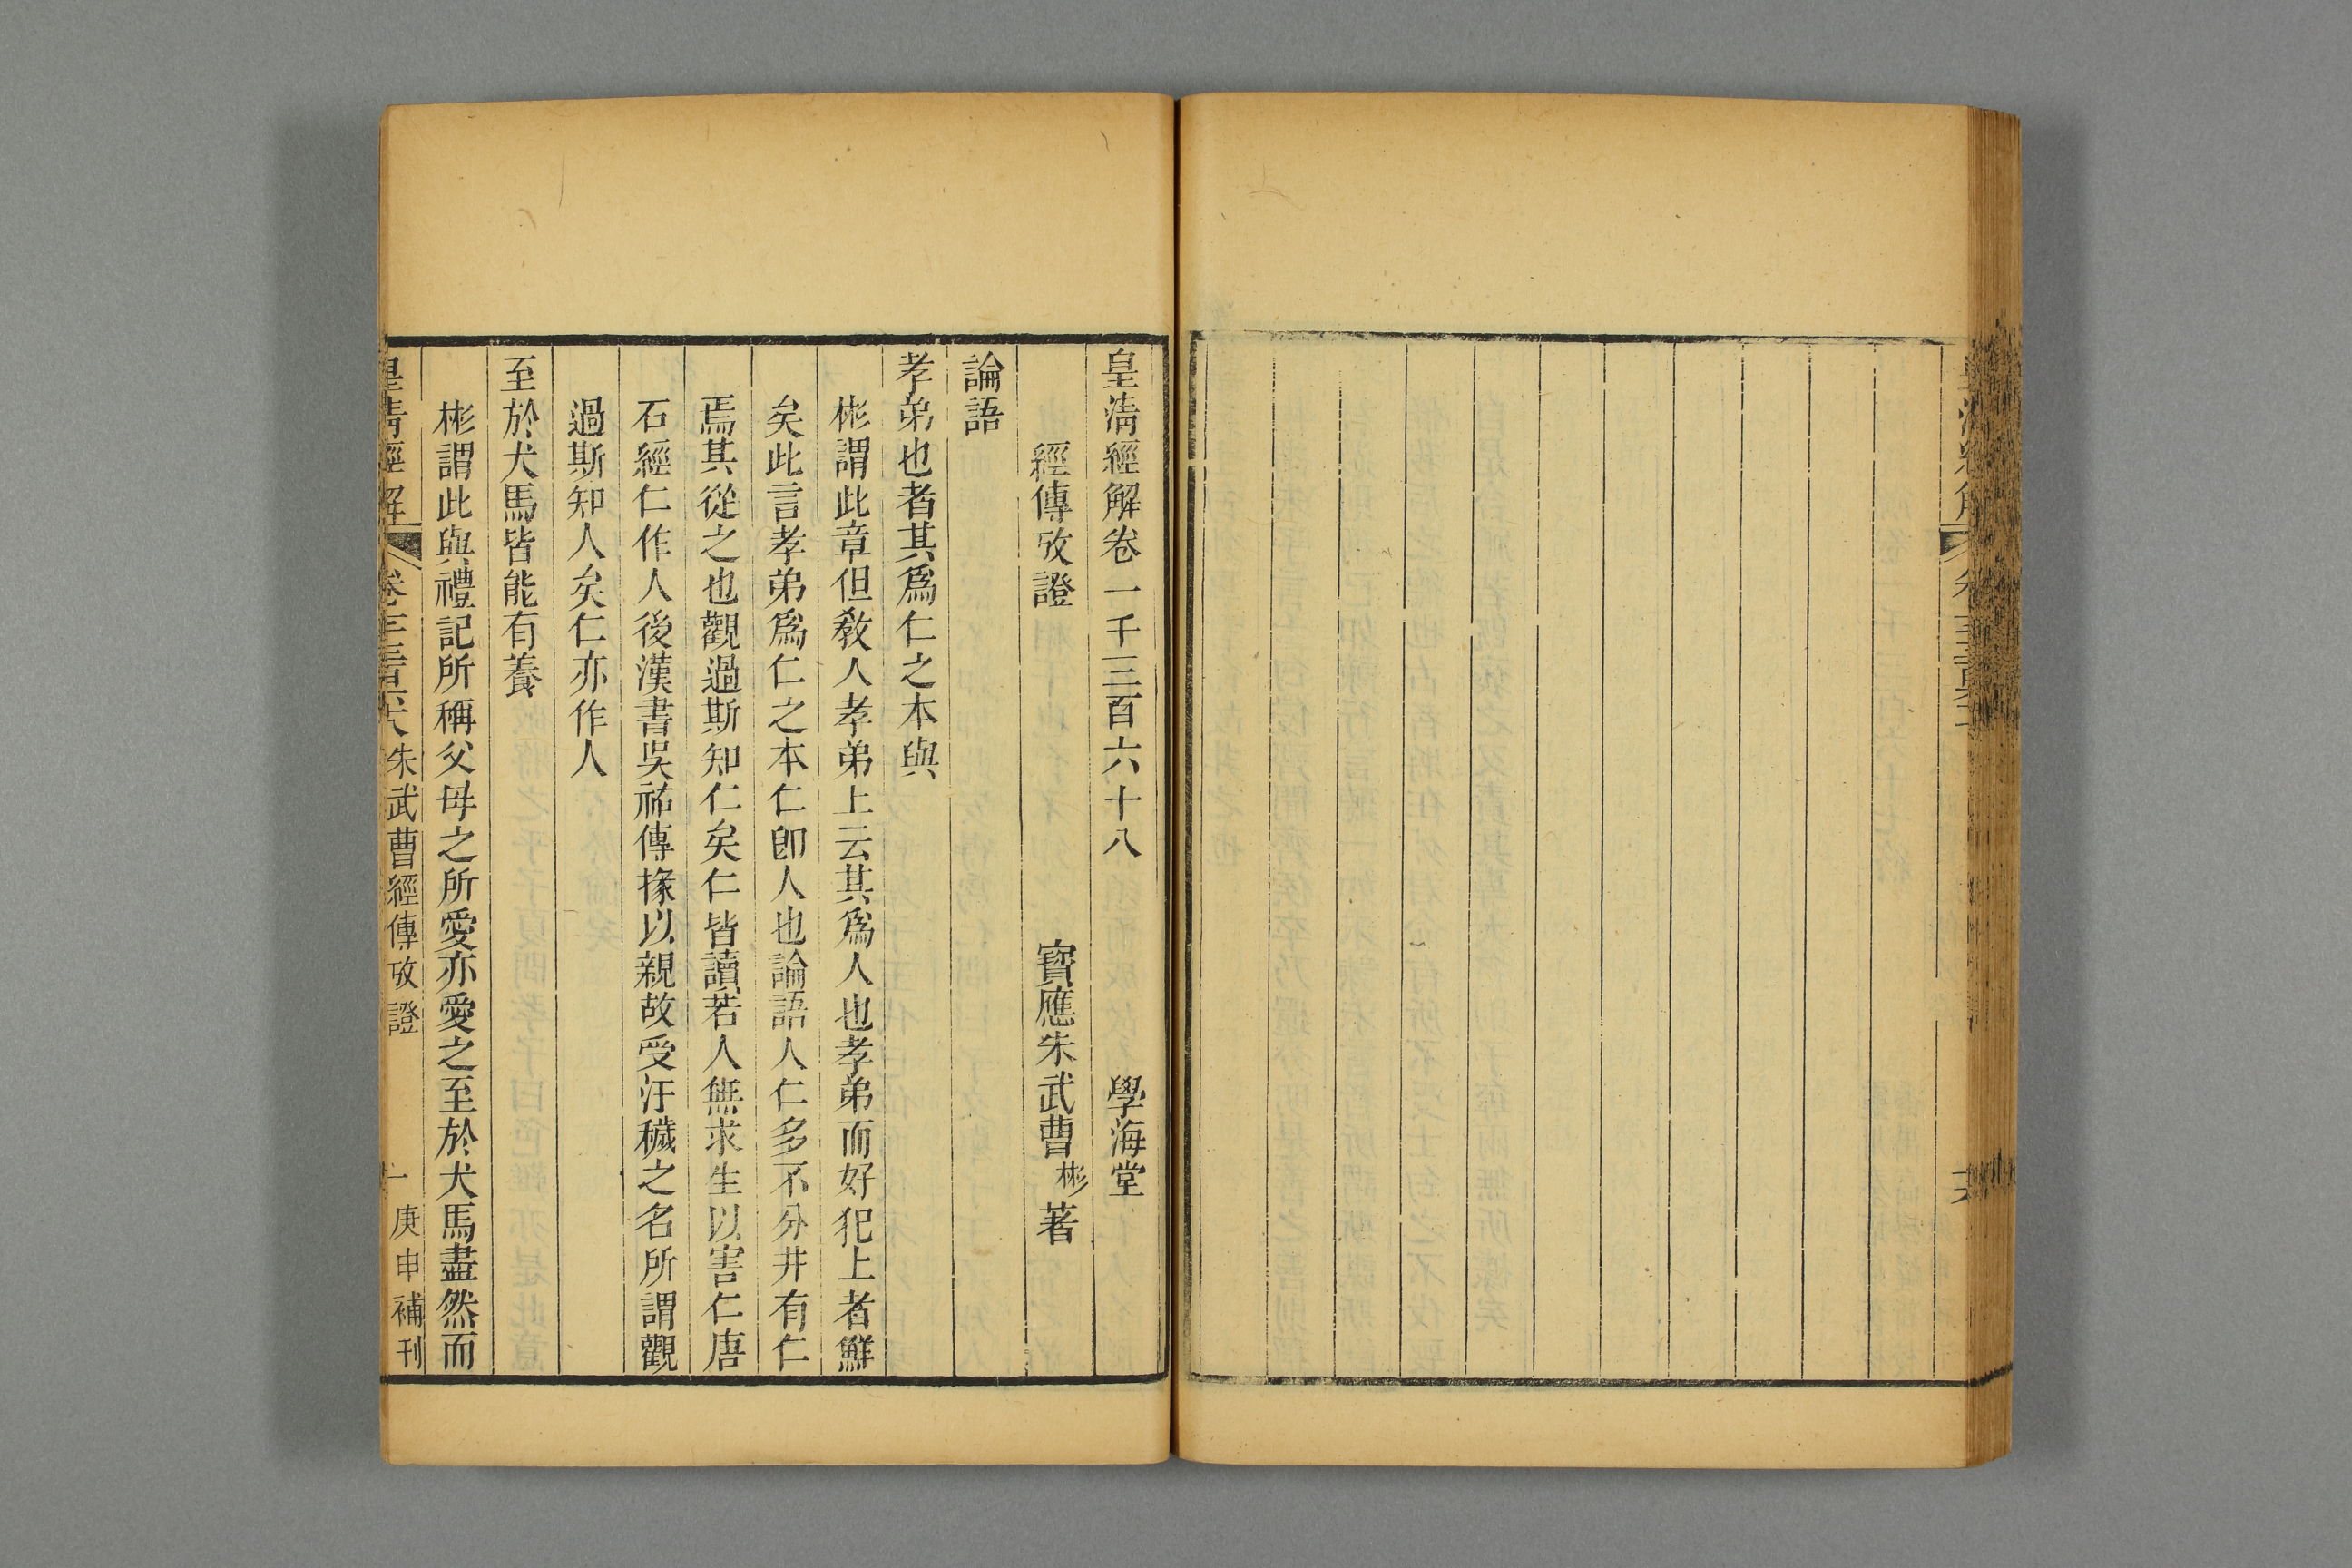 皇清經解卷一千三百六十八 學海堂
經傳攷證 寶應朱武曹彬著
論語
孝弟也者其爲仁之本與
彬謂此章但敎人孝弟上云其爲人也孝弟而好犯上者鮮
矣此言孝弟爲仁之本仁卽人也論語人仁多不分井有仁
焉其從之也觀過斯知仁矣仁皆讀若人無求生以害仁唐
石經仁作人後漢書吳祐傳掾以親故受汙穢之名所謂觀
過斯知人矣仁亦作人
至於犬馬皆能有養
彬謂此與禮記所稱父母之所愛亦愛之至於犬馬盡然而
皇清經解 卷 朱武曹經傳攷證 一 庚申補刊